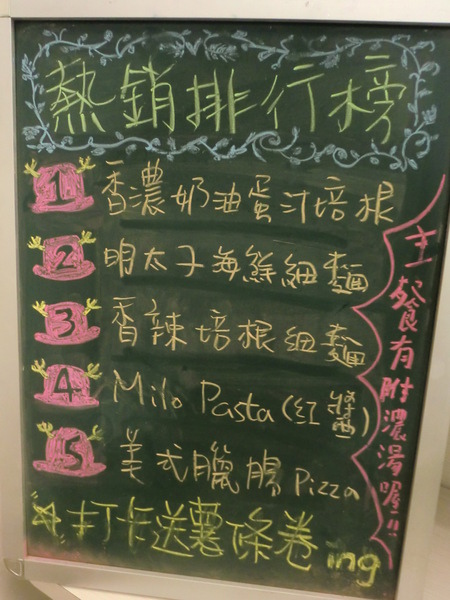 熱銷排行榜
1 香濃奶油蛋汁培根
2 明太子海鮮細麵
3 香辣培根細麵
4 Milo Pasta(紅醬)
5 美式臘腸Pizza
打卡送薯條卷ing
主餐有附濃湯喔!!